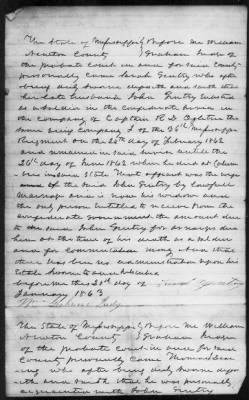 The State of Mississippi } Before me William
Newton County } Graham Judge of
the probate Court in and for said County
personally came Sarah Gentry who after
being duly sworn deposeth and saith that
her late husband John Gentry enlisted
as a soldier in the Confederate service in
the Company of Captain R D
same being Company of the 36th Mississippi
Regiment on the 26th day of February 1862
and remained in said service until the
26th day of June 1862 when he died at
in said State that affiant was the
of the said John Gentry by lawful
marriage and is now his widow and
the only person entitled to receive from the
Confederate government the amount due
to the said John Gentry for arrearages due
him at the time of his death as a soldier
and for commutation money and that
there has been no administration upon his
Estate Sworn to and subscribed
before me this 23rd day of Gentry
January 1863
Judge
The State of Mississippi } Before me William
Newton County } Graham Judge
of the probate Court in and for said
County personally came
who after being duly sworn depos
eth and saith that he was personally
acquainted with John Gentry